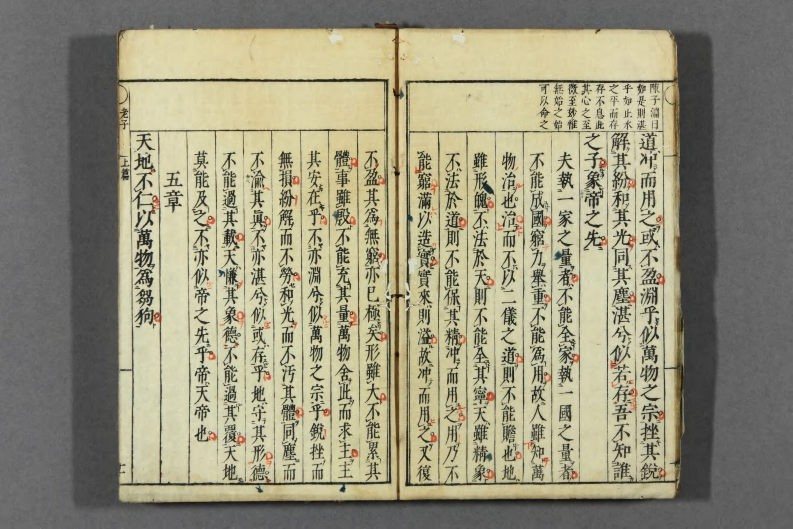 陳子淵曰
如是則湛
乎如止水
之平而存
存不息此
其心之至
微至妙惟
無始之始
可以命之
道冲而用之或不盈淵乎似萬物之宗挫其銳
解其紛和其光同其塵湛兮似若存吾不知誰
之子象帝之先
夫執一家之量者不能全家執一國之量者
不能成國窮力舉重不能爲用故人雖知萬
物治也治而不以二儀之道則不能贍也地
雖形魄不法於天則不能全其寧天雖精象
不法於道則不能保其精冲而用之用乃不
能窮滿以造實實來則溢故冲而用之又復
不盈其爲無窮亦已極矣形雖大不能累其
體事雖殷不能充其量萬物舍此而求主主
其安在乎不亦淵兮似萬物之宗乎銳挫而
無損紛解而不勞和光而不汚其體同塵而
不渝其眞不亦湛兮似或存乎地守其形德
不能過其載天慊其象德不能過其覆天地
莫能及之不亦似帝之先乎帝天帝也
五章
天地不仁以萬物爲芻狗
老子
上篇